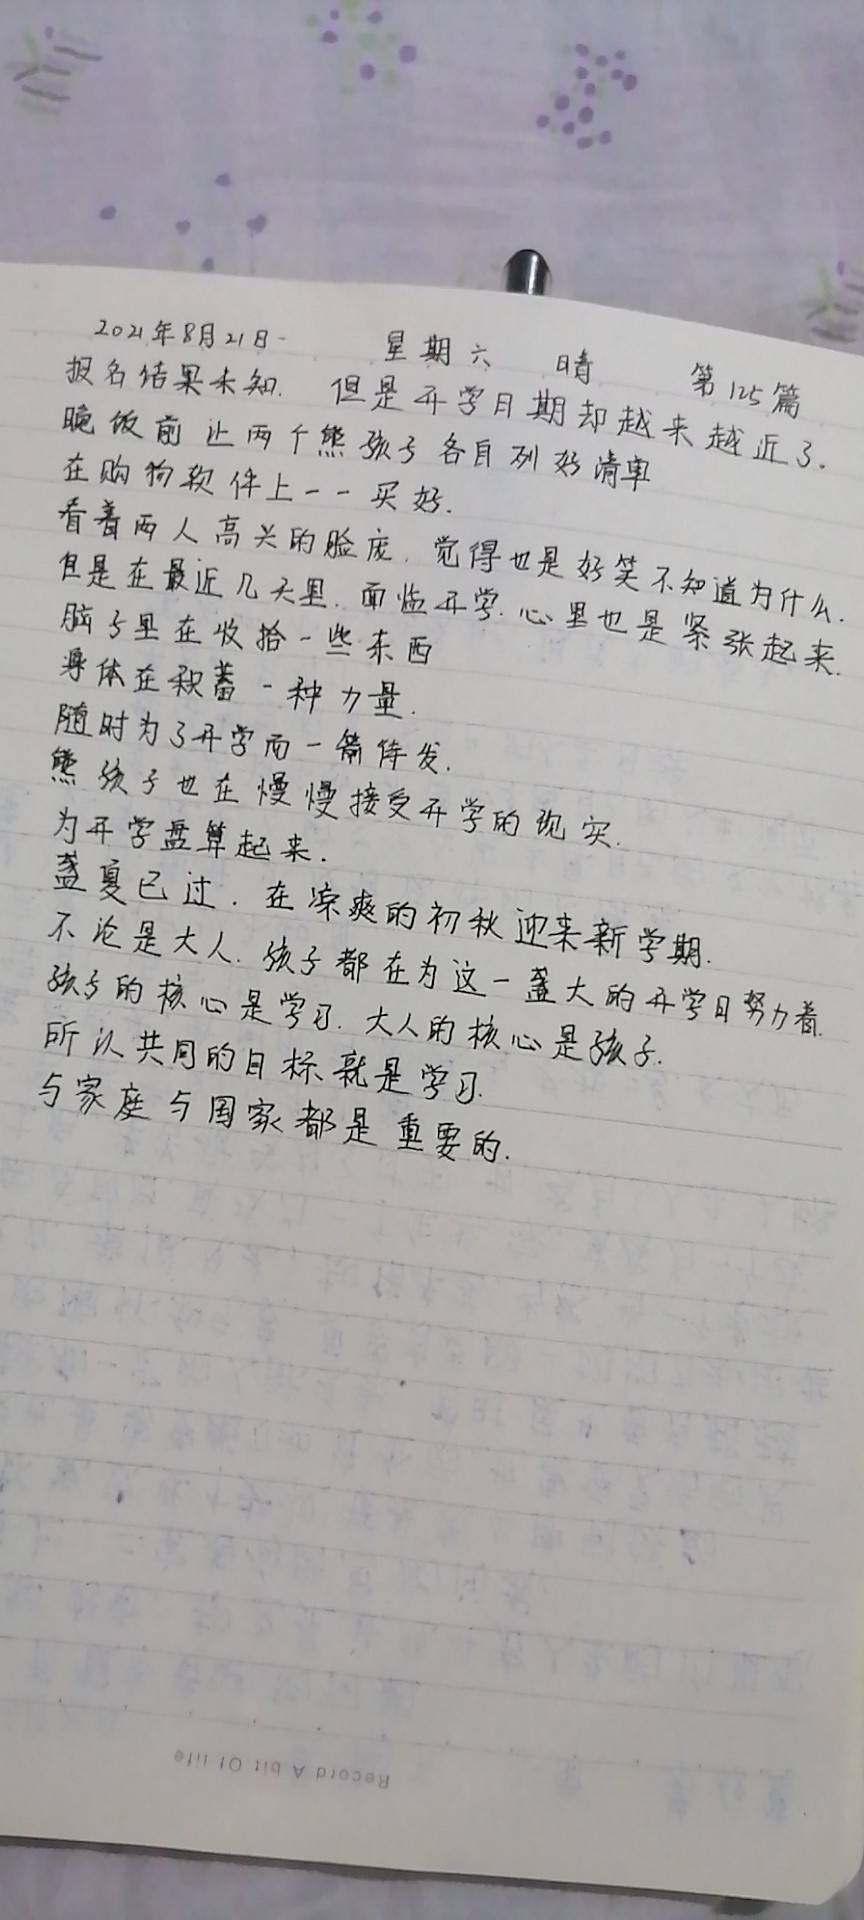 2021年8月21日 星期六 晴 第125篇
报名结果未知. 但是开学日期却越来越近了.
晚饭前让两个熊孩子各自列好清单
在购物软件上一一买好.
看着两人高兴的脸庞. 觉得也是好笑不知道为什么.
但是在最近几天里. 面临开学. 心里也是紧张起来.
脑子里在收拾一些东西
身体在积蓄一种力量.
随时为了开学而一箭待发.
熊孩子也在慢慢接受开学的现实.
为开学盘算起来.
盛夏已过. 在凉爽的初秋迎来新学期.
不论是大人. 孩子都在为这一盛大的开学日努力着.
孩子的核心是学习. 大人的核心是孩子.
所以共同的目标就是学习.
与家庭与国家都是重要的.
Record A bit Of life